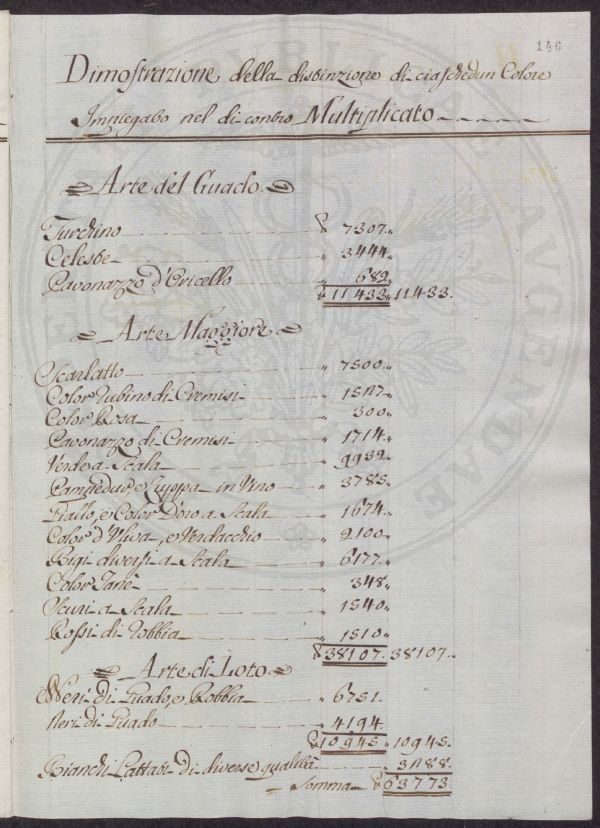 146
Dimostrazione della distinzione di ciaschedun Colore
Impiegato nel di contro Multiplicato
Arte del Guado
Turchino 7307
Celeste 3444
Pavonazzo d'Oricello 682
11433 11433.
Arte Maggiore
Scarlatto 7500
Color Rubino di Cremisi 1527
Color Rosa 300
Pavonazzo di Cremisi 1714
Verde a Scala 9932
e Giuppa in Vino 3785
Giallo, e Color D'oro a Scala 1674
Color d'Uliva, e Verdacchio 2100
Bigi diversi a Scala 6177
Color Tanè 348
Scuri a Scala 1540
Rossi di Robbia 1510
38107. 38107.
Arte di Loto
Neri di Guado, e Robbia 6751.
Neri di Guado 4194.
10945 10945.
Bianchi Lattati di diverse qualità 3288.
Somma 63773